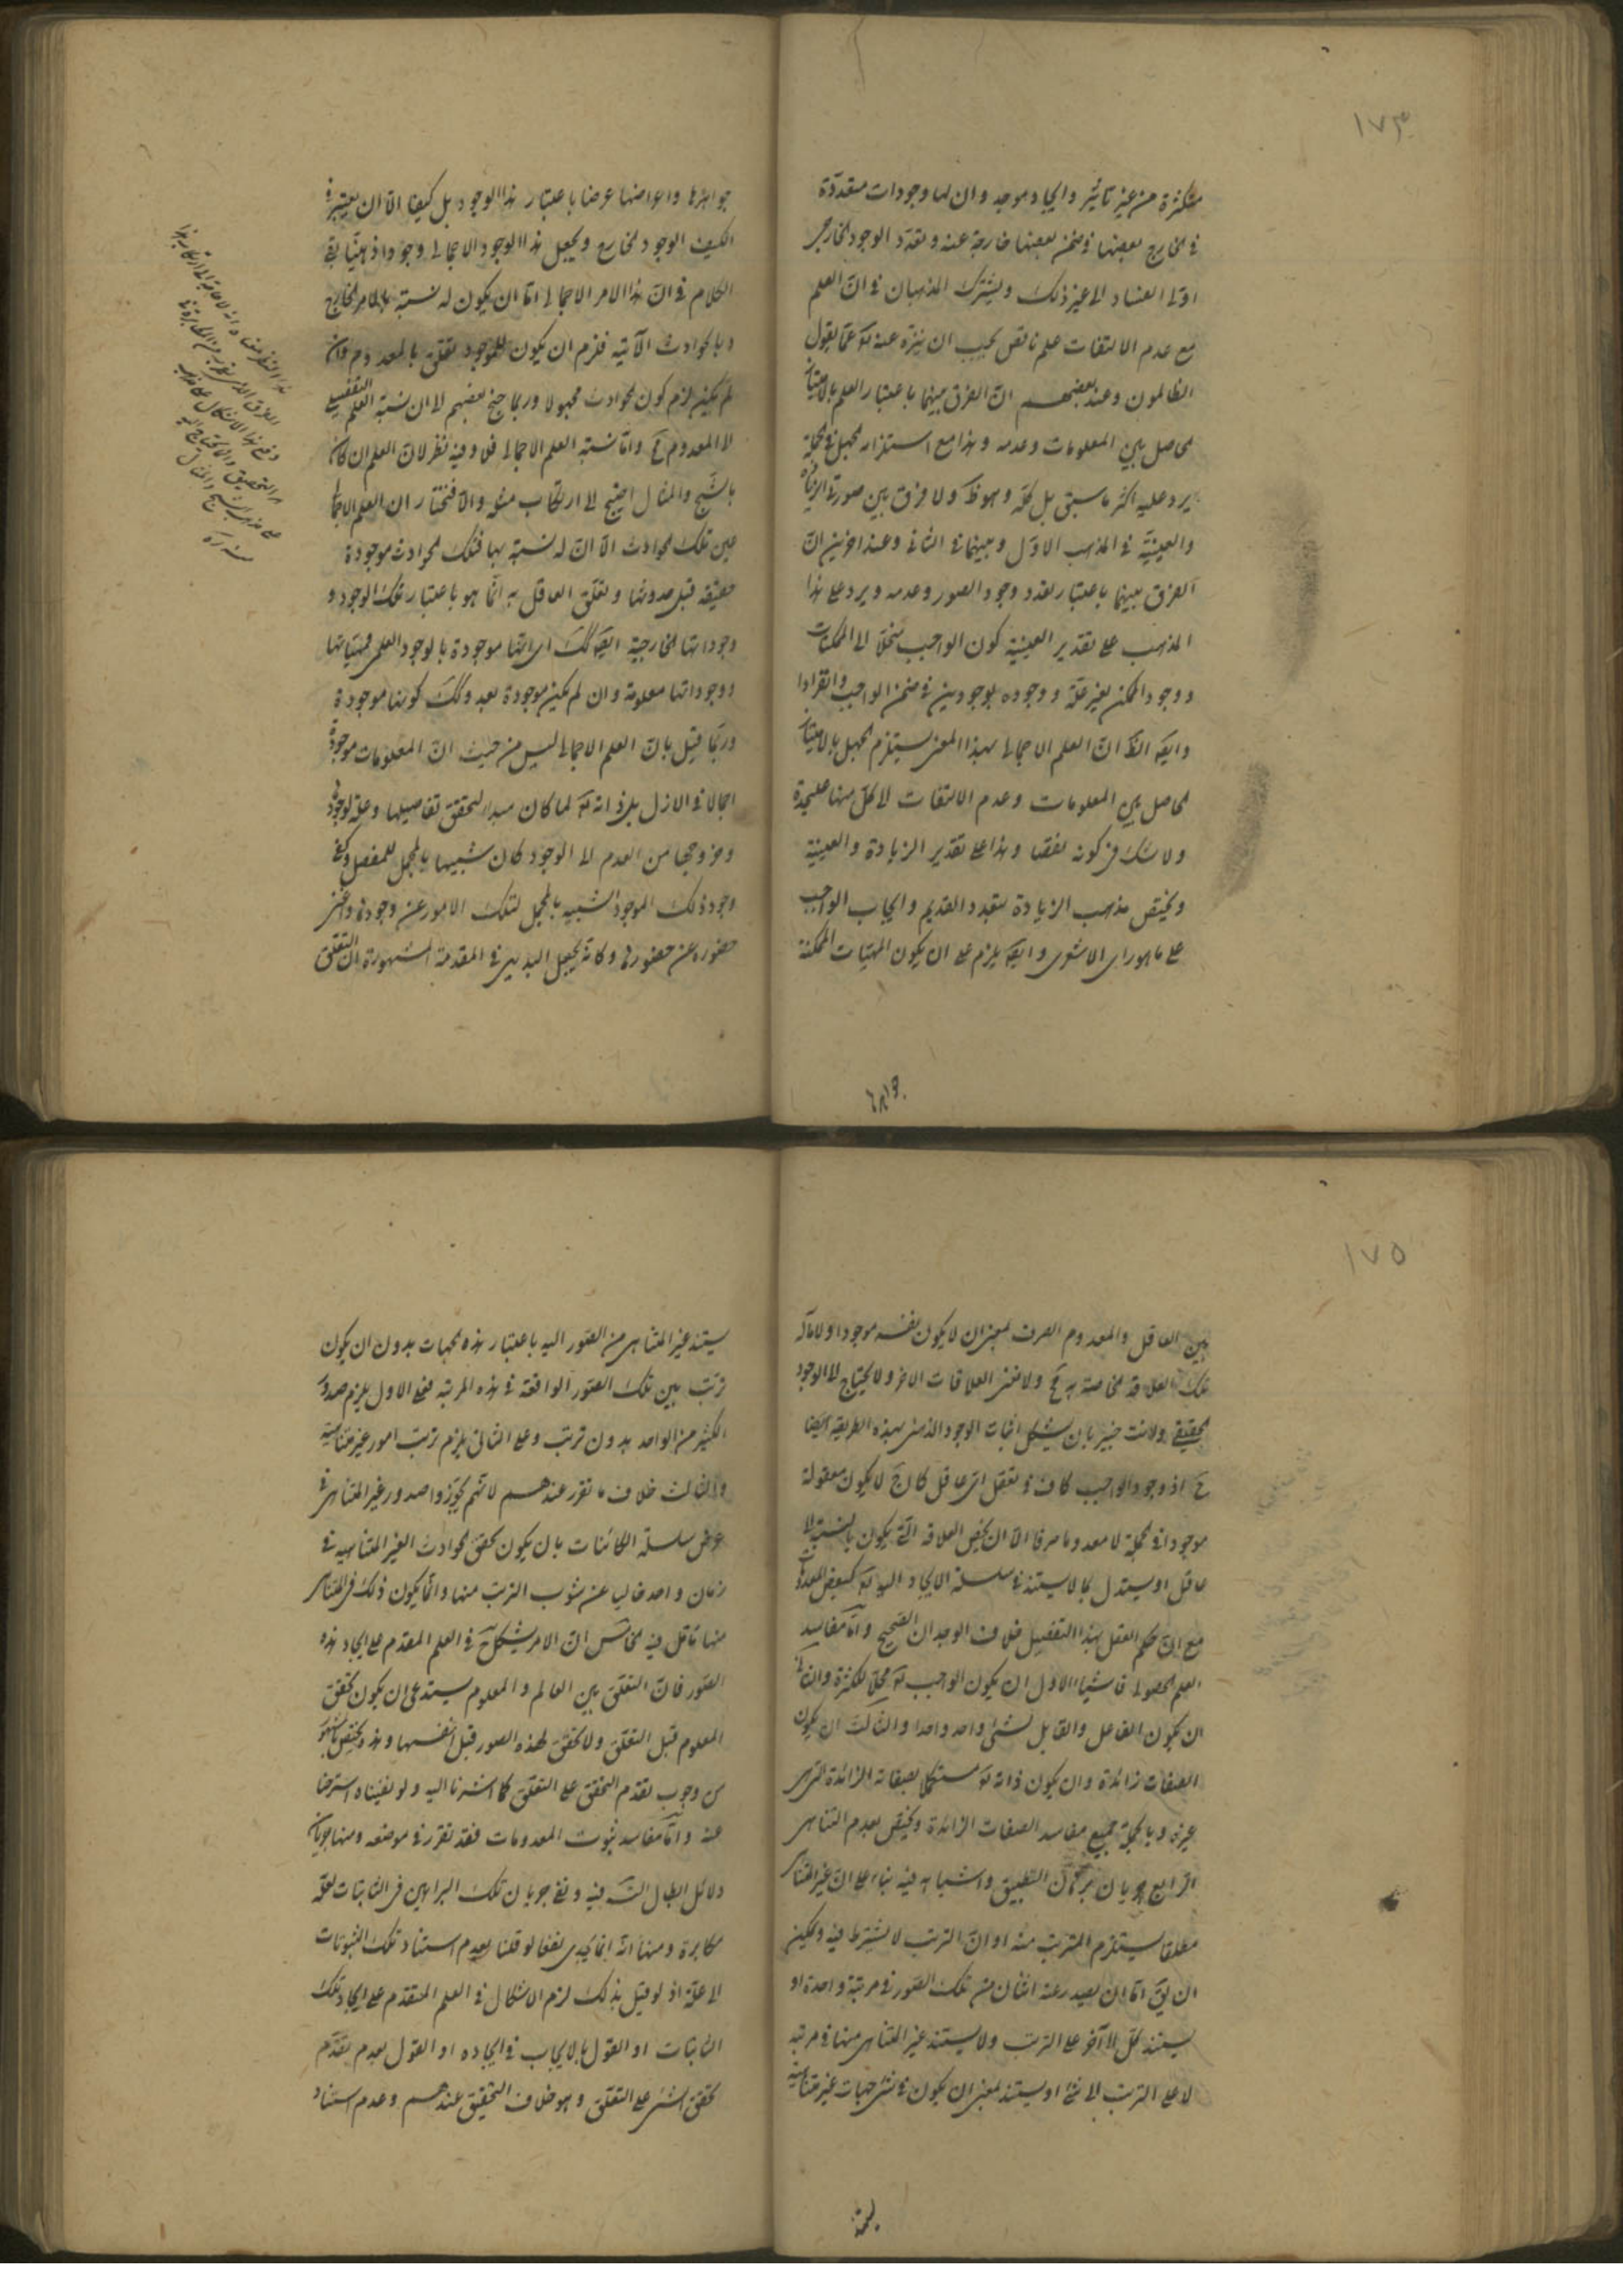 ١٧٤
متكثرة من غير تأثير وايجاد موجد وان لها وجودات متعددة
في الخارج بعضها في ضمن بعضها خارجة عنه وتعدد الوجود الخارجي
الفساد الى غير ذلك ويشترك المذهبان في ان العلم
مع عدم الالتفات علم ناقص يجب ان ينزه عنه تع عما يقول
الظالمون وعند بعضهم ان الفرق بينهما باعتبار العلم بالامتياز
الحاصل بين المعلومات وعدمه وهذا مع استلزام الجهل في الجملة
يرد عليه اكثر ما سبق بل كله وهو ظ ولا فرق بين صورتي الزيادة
والعينية في المذهب الاول وبينهما في الثاني وعند اخرين ان
الفرق بينهما باعتبار تعدد وجود الصور وعدمه ويرد على هذا
المذهب على تقدير العينية كون الواجب منحلا الى الممكنات
ووجود الممكن بغير علة ووجوده بوجودين في ضمن الواجب وانفرادا
وايضا الظ ان العلم الاجمالي بهذا المعنى يستلزم الجهل بالامتياز
الحاصل بين المعلومات وعدم الالتفات الى كل منها عليحدة
ولا شك في كونه نقصا وهذا على تقدير الزيادة والعينية
ويختص مذهب الزيادة بتعدد القديم وايجاب الواجب
على ما هو راي الاشعري وايضا يلزم على ان يكون المهيات الممكنة
جواهرها واعراضها عرضا باعتبار هذا الوجود بل كيفا الا ان يعتبر في
الكيف الوجود الخارجي ويجعل هذا الوجود الاجمالي وجودا ذهنيا بقي
الكلام في ان هذا الامر الاجمالي اما ان يكون له نسبة بالامر الخارج
وبالحوادث الآتية فلزم ان يكون للموجود تعلق بالمعدوم وان
لم يكن لزم كون الحوادث مجهولا وربما جنح بعضهم الى ان نسبة العلم التفصيلي
الى المعدوم مح واما نسبة العلم الاجمالي فلا وفيه نظر لان العلم ان كان
بالشبح والمثال احتيج الى ارتكاب مثله والا فنختار ان العلم الاجمالي
عين تلك الحوادث الا ان له نسبة بها فتلك الحوادث موجودة
حقيقة قبل حدوثها وتعلق العاقل به انما هو باعتبار تلك الوجود و
وجوداتها الخارجية ايضا كك اي انها موجودة بالوجود العلمي فمهياتها
ووجوداتها معلومة وان لم يكن موجودة بعد وكك كونها موجودة
وربما قيل بان العلم الاجمالي ليس من حيث ان المعلومات موجودة
اجمالا في الازل بل ذاته تع لما كان مبدء لتحقق تفاصيلها وعلة لوجودها
وخروجها من العدم الى الوجود كان شبيها بالمجمل للمفصل وكفى
وجود ذلك الموجود الشبيه بالمجمل لتلك الامور عن وجودها واغنى
حضوره عن حضورها وكانه يجعل البديهي في المقدمة المشهورة ان التعلق
١٧٥
بين العاقل والمعدوم الصرف بمعنى ان لا يكون بنفسه موجودا ولا ماله
تلك العلاقة الخاصة به مح ولا تغني العلاقات الاخر ولا يحتاج الى الوجود
الحقيقي ولانت خبير بان يشكل اثبات الوجود الذهني بهذه الطريقة ايضا
ح اذ وجود الواجب كاف في تعقل اي عاقل كان ح لا يكون معقوله
موجودا في الجملة لا معدوما صرفا الا ان يخص العلاقة التي يكون بالنسبة الى
عاقل او يستدل بما لا يستند في سلسلة الايجاد اليه تع كبعض المعدومات
مع ان حكم العقل بهذا التفصيل خلاف الوجدان الصحيح واما مفاسد
العلم الحصولي فاشياء الاول ان يكون الواجب تع محلا للكثرة والثاني
ان يكون الفاعل والقابل لشئ واحد واحدا والثالث ان يكون
الصفات زائدة وان يكون ذاته تع مستكملا بصفاته الزائدة التي هي
غيره وبالجملة جميع مفاسد الصفات الزائدة ويختص بعدم التناهي
الرابع جريان برهان التطبيق واشباهه فيه بناء على ان غير المتناهي
مطلقا يستلزم المترتب منه او ان الترتب لا يشترط فيه ويمكن
ان يق اما ان يصدر عنه اثنان من تلك الصور في مرتبة واحدة او
يستند كل الى آخر على الترتب ولا يستند غير المتناهي منها في مرتبة
لا على الترتب الى شئ او يستند بمعنى ان يكون في شئ جهات غير متناهية
يستند غير المتناهي من الصور اليه باعتبار هذه الجهات بدون ان يكون
ترتب بين تلك الصور الواقعة في هذه المرتبة فعلى الاول يلزم صدور
الكثير من الواحد بدون ترتب وعلى الثاني يلزم ترتب امور غير متناهية
والثالث خلاف ما تقرر عندهم لانهم لم يجوزوا صدور غير المتناهي في
عرض سلسلة الكائنات بان يكون تحقق الحوادث الغير المتناهية في
زمان واحد خاليا عن شوب الترتب منها وانما يكون ذلك في المتناهي
منها تامل فيه الخامس ان الامر يشكل ح في العلم المقدم على ايجاد هذه
الصور فان التعلق بين العالم والمعلوم يستدعي ان يكون تحقق
المعلوم قبل التعلق ولا تحقق لهذه الصور قبل انفسها وهذه يختص بما هو المشهور
من وجوب تقدم التحقق على التعلق كما اشرنا اليه ولو نفيناه استرحنا
عنه واما مفاسد ثبوت المعدومات فقد تقرر في موضعه ومنها جريان
دلائل ابطال التس فيه ونفي جريان تلك البراهين في الثابتات لعله
مكابرة ومنها انه انما يجدي نفعا لو قلنا بعدم استناد تلك الثبوتات
الى علة اذ لو قيل بذلك لزم الاشكال في العلم المتقدم على ايجاد تلك
الثابتات او القول بالايجاب في ايجاده او القول بعدم تقدم
تحقق الشئ على التعلق وهو خلاف التحقيق عندهم وعدم استناد